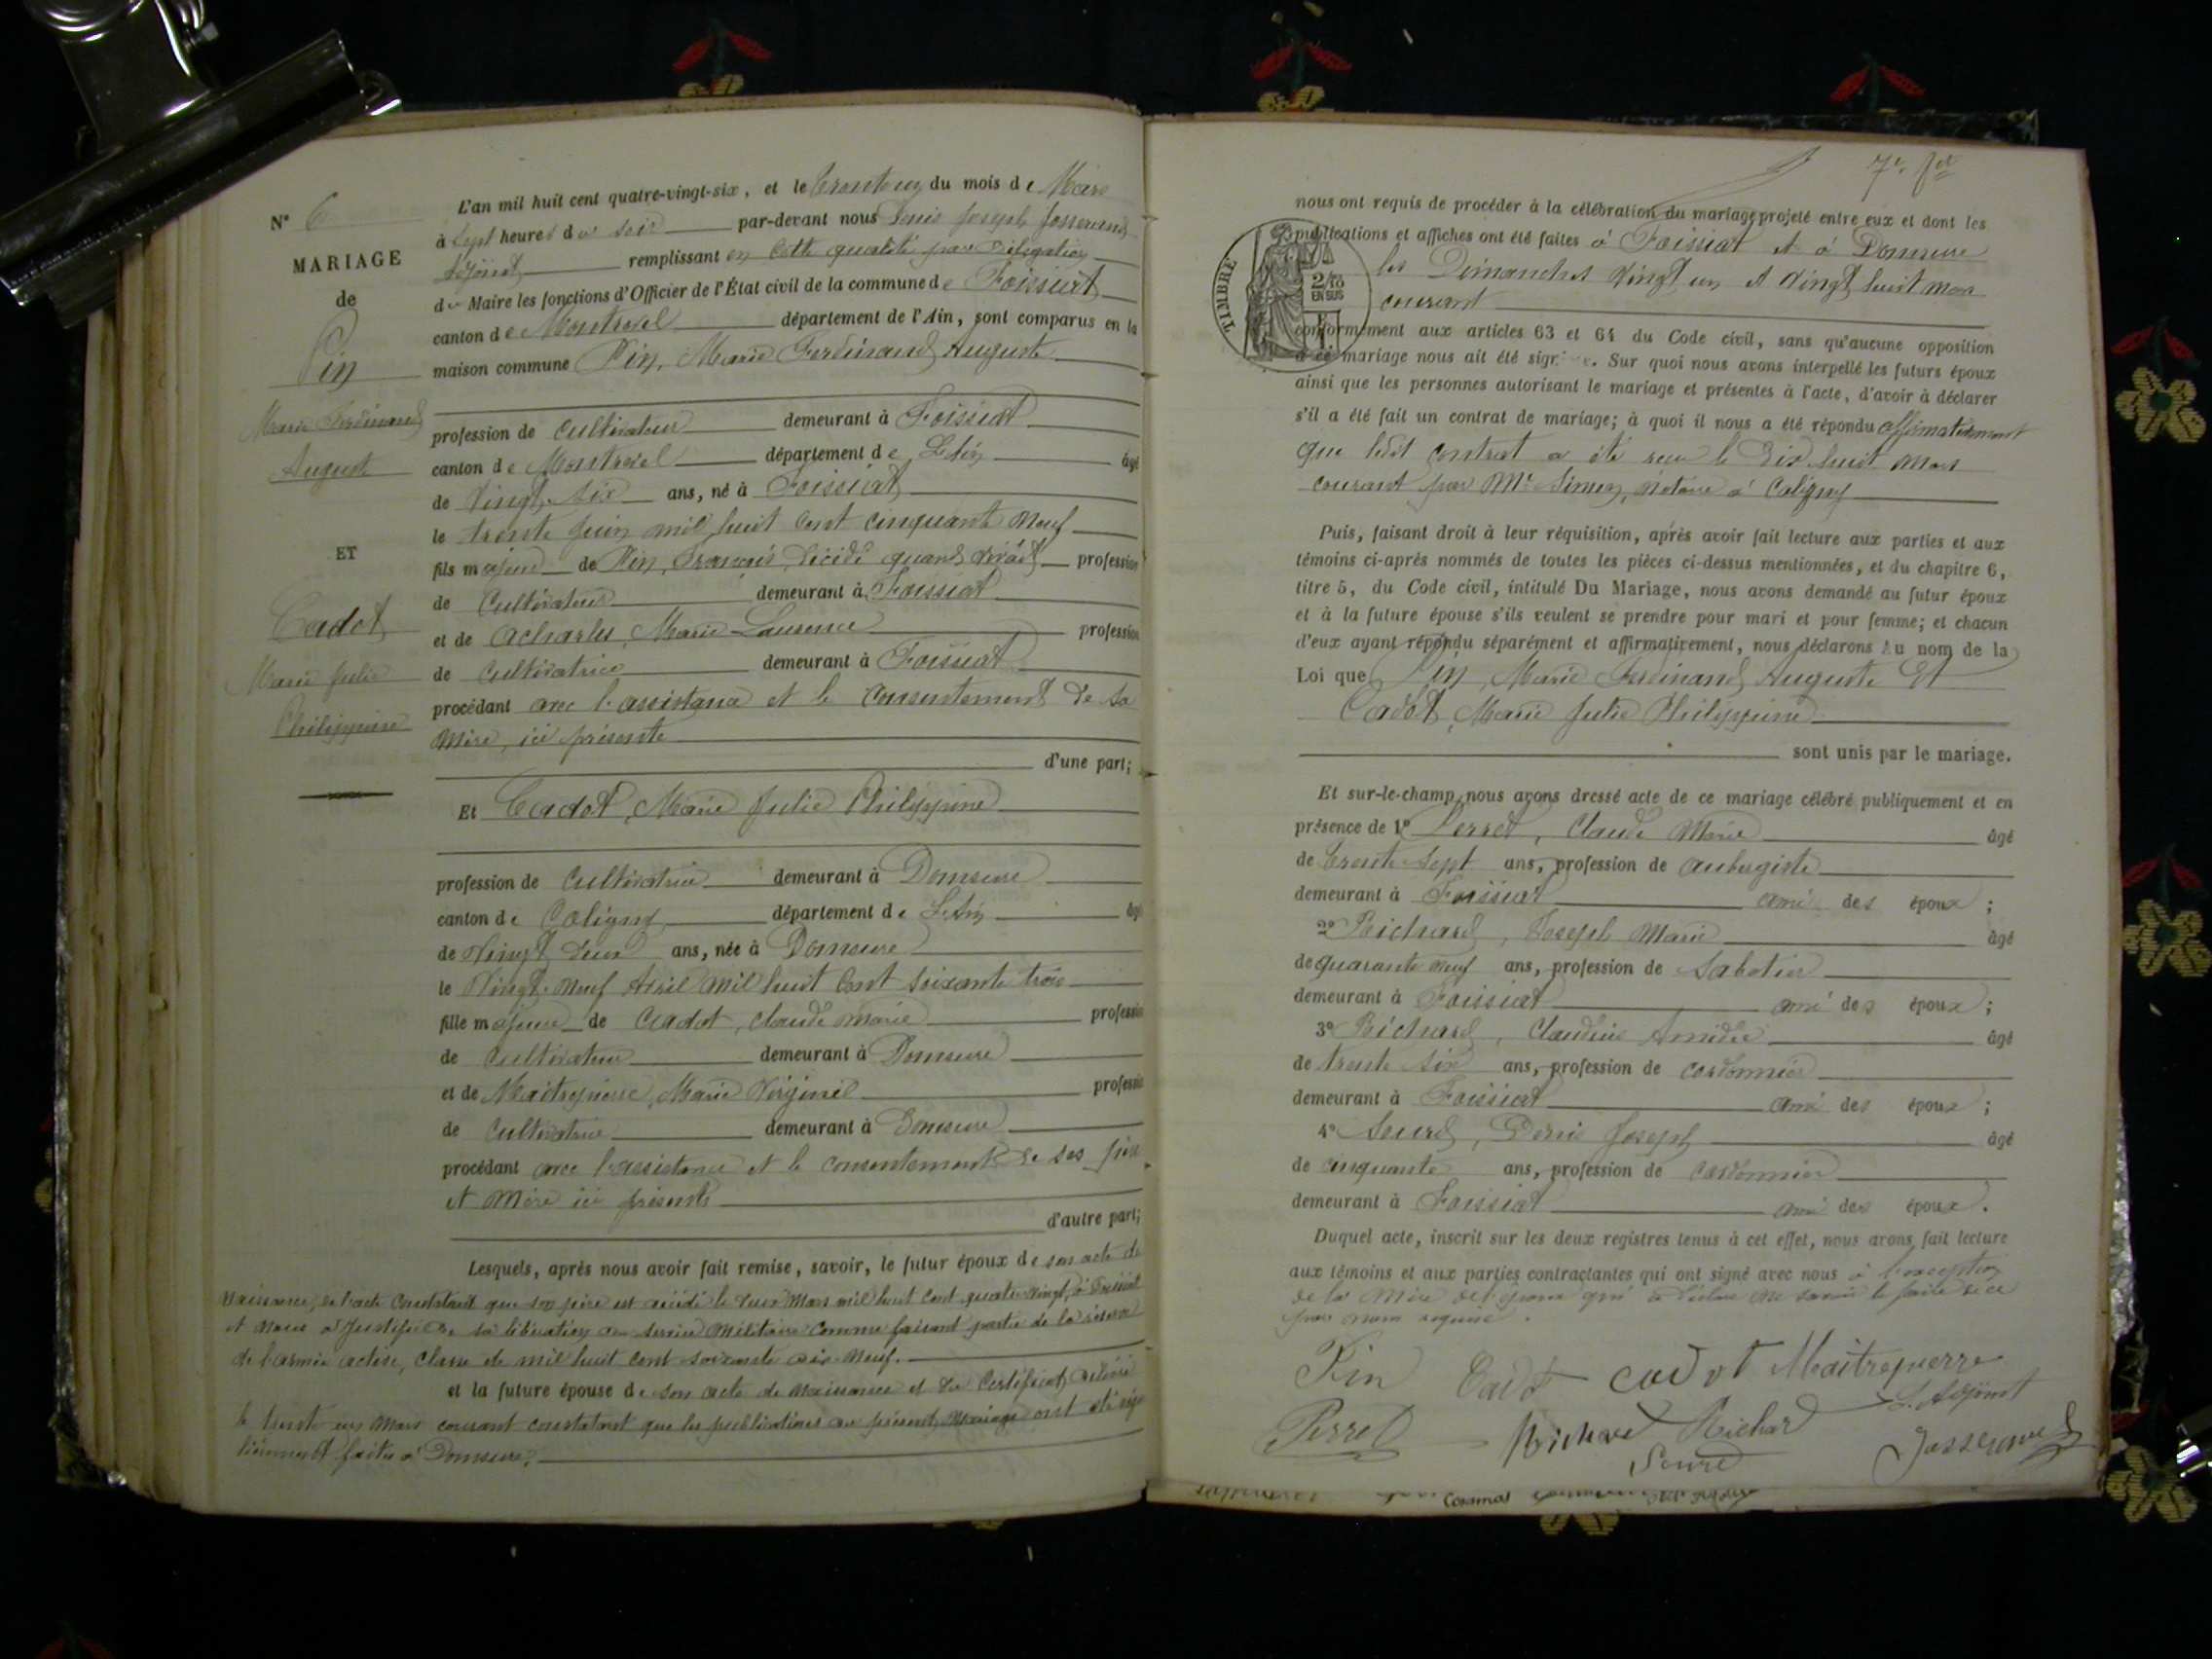 N° 6
MARIAGE
de
Pin
Marie Ferdinand
Auguste
ET
Cadot
Marie Julie
Philippine
L'an mil huit cent quatre-vingt-six, et le trente un du mois de Mars
à sept heures du soir par-devant nous Louis Joseph Josserand
adjoint remplissant en cette qualité par délégation
du Maire les fonctions d'Officier de l'État civil de la commune de Foissiat
canton de Montrevel département de l'Ain, sont comparus en la
maison commune Pin, Marie Ferdinand Auguste
profession de cultivateur demeurant à Foissiat
canton de Montrevel département de L'Ain âgé
de vingt six ans, né à Foissiat
le trente juin mil huit cent cinquante neuf
fils majeur de Pin, François, décédé quand vivait profession
de cultivateur demeurant à Foissiat
et de Acharles, Marie Laurence profession
de cultivatrice demeurant à Foissiat
procédant avec l'assistance et le consentement de sa
mère, ici présente
d'une part;
Et Cadot, Marie Julie Philippine
profession de cultivatrice demeurant à Domsure
canton de Coligny département de L'Ain âgé
de vingt deux ans, née à Domsure
le vingt neuf avril mil huit cent soixante trois
fille majeure de Cadot, Claude Marie profession
de cultivateur demeurant à Domsure
et de Maitrepierre, Marie Virginie profession
de cultivatrice demeurant à Domsure
procédant avec l'assistance et le consentement de ses père
et mère ici présents
d'autre part;
Lesquels, après nous avoir fait remise, savoir, le futur époux de son acte de
naissance, de l'acte constatant que son père est décédé le deux mars mil huit cent quatre vingt, à Foissiat
et nous a justifié de sa libération du service militaire comme faisant partie de la réserve
de l'armée active, classe de mil huit cent soixante dix-neuf.
et la future épouse de son acte de naissance et du certificat délivré
le trente un mars courant constatant que les publications du présent mariage ont été régu
lièrement faites à Domsure.
7e fet
nous ont requis de procéder à la célébration du mariage projeté entre eux et dont les
publications et affiches ont été faites à Foissiat et à Domsure
les Dimanches vingt un et vingt huit mars
courant
TIMBRE
2/10
EN SUS
conformément aux articles 63 et 64 du Code civil, sans qu'aucune opposition
à ce mariage nous ait été signifiée. Sur quoi nous avons interpellé les futurs époux
ainsi que les personnes autorisant le mariage et présentes à l'acte, d'avoir à déclarer
s'il a été fait un contrat de mariage; à quoi il nous a été répondu affirmativement
que ledit contrat a été reçu le dix huit mars
courant par Me notaire à Coligny
Puis, faisant droit à leur réquisition, après avoir fait lecture aux parties et aux
témoins ci-après nommés de toutes les pièces ci-dessus mentionnées, et du chapitre 6,
titre 5, du Code civil, intitulé Du Mariage, nous avons demandé au futur époux
et à la future épouse s'ils veulent se prendre pour mari et pour femme; et chacun
d'eux ayant répondu séparément et affirmativement, nous déclarons Au nom de la
Loi que Pin, Marie Ferdinand Auguste Et
Cadot, Marie Julie Philippine
sont unis par le mariage.
Et sur-le-champ nous avons dressé acte de ce mariage célébré publiquement et en
présence de 1° Perret, Claude Marie âgé
de trente sept ans, profession de aubergiste
demeurant à Foissiat ami des époux;
2° Richard, Joseph Marie âgé
de quarante neuf ans, profession de sabotier
demeurant à Foissiat ami des époux;
3° Richard, Claudius Amédée âgé
de trente six ans, profession de cordonnier
demeurant à Foissiat ami des époux;
4° Sourd, Denis Joseph âgé
de cinquante ans, profession de cordonnier
demeurant à Foissiat ami des époux.
Duquel acte, inscrit sur les deux registres tenus à cet effet, nous avons fait lecture
aux témoins et aux parties contractantes qui ont signé avec nous à l'exception
de la mère de l'époux qui a déclaré ne savoir le faire de ce
par nous requise.
Pin Cadot Cadot Maitrepierre
L'Adjoint
Perret Richard Richard
Sourd
Josserand